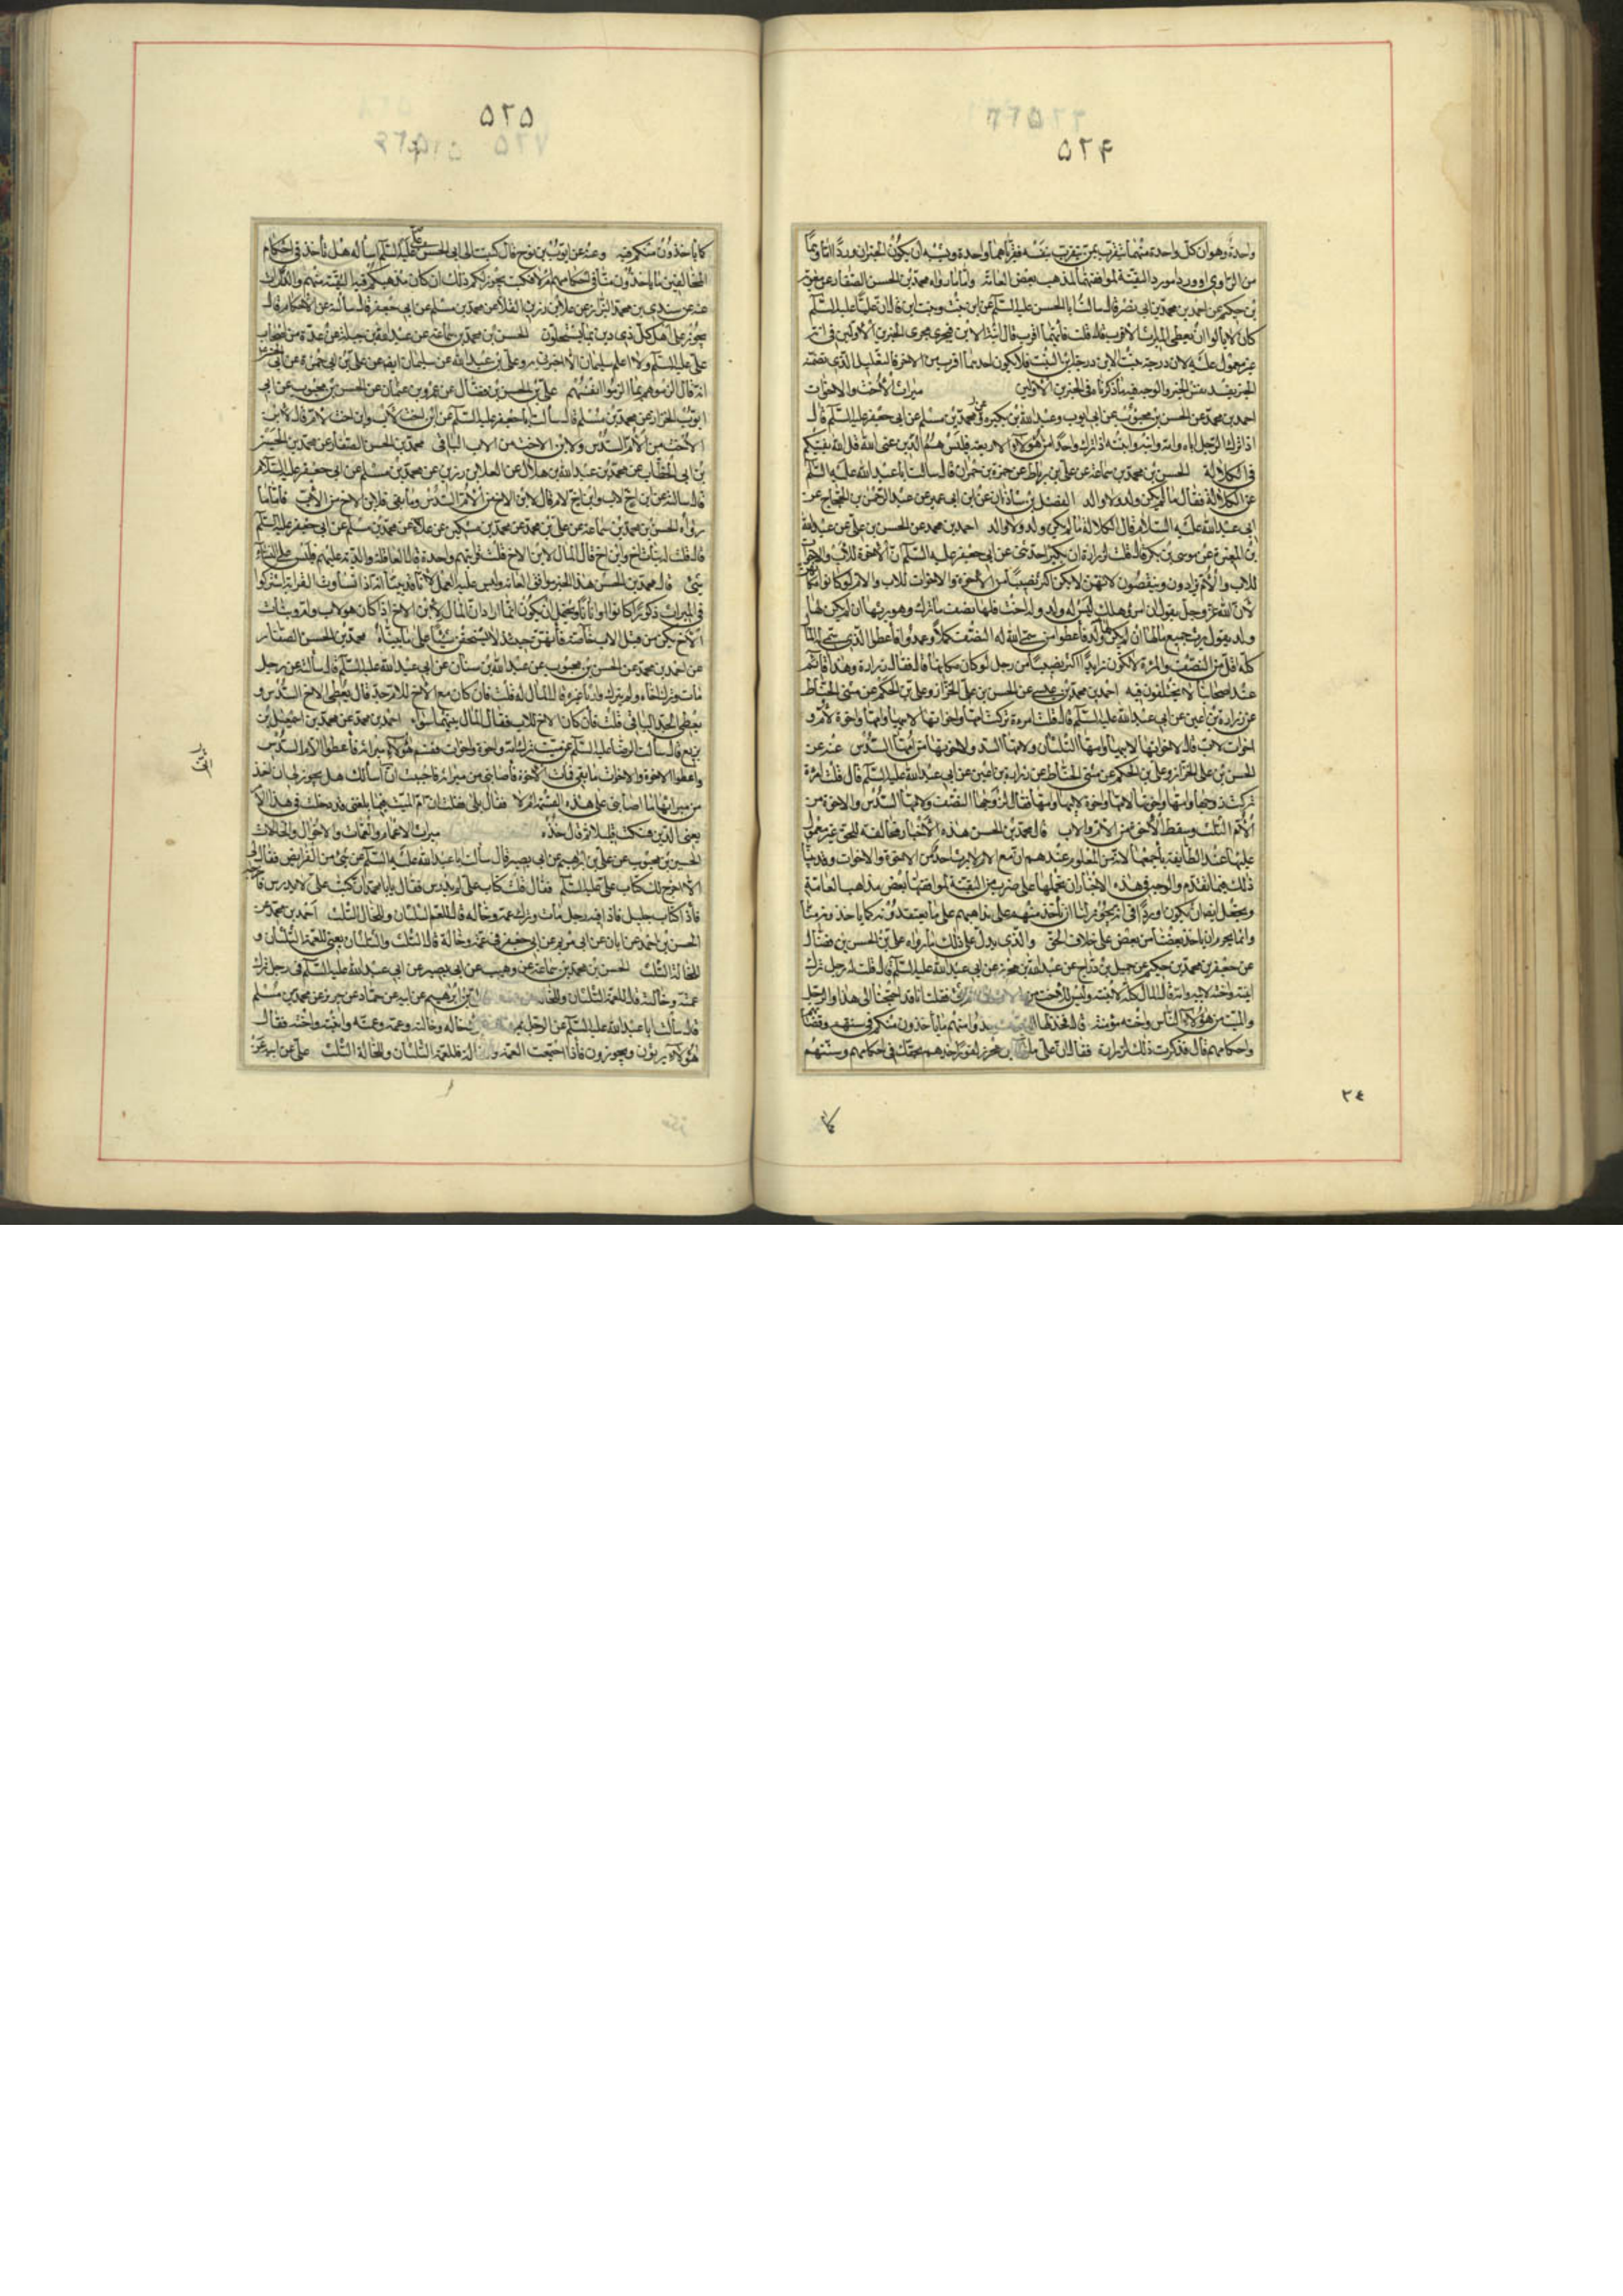 ۵۲۴
واحدة وهو ان كل واحدة منهما تتقرب بمن تتقرب بنفسه فقرباهما واحدة ويشبه ان يكون الخبران وردا اما وهما
من الراوي او وردا مورد التقية لموافقتهما لمذهب بعض العامة واما ما رواه محمد بن الحسن الصفار عن معوية
بن حكيم عن احمد بن محمد بن ابى نصر قال سالت ابا الحسن عليه السلم عن ابن بنت وبنت ابن قال ان عليا عليه السلم
كان لا يالوا ان يعطى الميراث الاقرب قال قلت فايهما اقرب قال ابنة الابن فيجرى مجرى الخبرين الاولين فى انه
غير معمول عليه لان درجة بنت الابن درجة ابن البنت فلا يكون احدهما اقرب من الاخر فالتعليل الذى تضمنه
الخبر يفسد نفس الخبر والوجه فيه ما ذكرناه فى الخبرين الاولين ميراث الاخوة والاخوات
احمد بن محمد عن الحسن بن محبوب عن ابى ايوب وعبد الله بن بكير عن محمد بن مسلم عن ابى جعفر عليه السلم قال
اذا ترك الرجل اباه وامه وابنه وابنته اذا ترك واحدا من هؤلاء الاربعة فليس هم الذين عنى الله قل الله يفتيكم
فى الكلالة الحسن بن محمد بن سماعة عن على بن رباط عن حمزة بن حمران قال سالت ابا عبد الله عليه السلم
عن الكلالة فقال ما لم يكن ولد ولا والد الفضل بن شاذان عن ابن ابى عمير عن عبد الرحمن بن الحجاج عن
ابى عبد الله عليه السلام قال الكلالة ما لم يكن ولد ولا والد احمد بن محمد عن الحسن بن على عن عبد الله
بن المغيرة عن موسى بن بكر قال قلت لزرارة ان بكير حدثنى عن ابى جعفر عليه السلم ان الاخوة للاب والاخوات
للاب والام يزادون وينقصون لانهن لا يكن اكثر نصيبا من الاخوة والاخوات للاب والام لو كانوا مكانهن
لان الله عز وجل يقول ان امرؤ هلك ليس له ولد وله اخت فلها نصف ما ترك وهو يرثها ان لم يكن لها
ولد يقول يرث جميع مالها ان لم يكن لها ولد فاعطوا من سمى الله له النصف كملا وعمدوا فاعطوا الذى سمى له المال
كله اقل من النصف والمرأة لا تكون ابدا اكثر نصيبا من رجل لو كان مكانها قال فقال زرارة وهذا قائم
عند اصحابنا لا يختلفون فيه احمد بن محمد بن عيسى عن الحسن بن على الخزاز وعلى بن الحكم عن مثنى الحناط
عن زرارة بن اعين عن ابى عبد الله عليه السلم قال قلت امرءة تركت امها واخواتها لابيها وامها واخوة لام و
اخوات لاب قال لاخواتها لابيها وامها الثلثان ولامها السدس ولاخوتها من امها السدس عنه عن
الحسن بن على الخزاز وعلى بن الحكم عن مثنى الحناط عن زرارة بن اعين عن ابى عبد الله عليه السلم قال قلت امرءة
تركت زوجها وامها واخوتها لامها واخوة لابيها وامها فقال لزوجها النصف ولامها السدس والاخوة من
الام الثلث وسقط الاخوة من الام والاب قال محمد بن الحسن هذه الاخبار مخالفة للحق غير معمول
عليها عند الطايفة باجمعها لانه من المعلوم عندهم ان مع الام لا يرث احد من الاخوة والاخوات وقد بينا
ذلك فيما تقدم والوجه فى هذه الاخبار ان نحملها على ضرب من التقية لموافقتها بعض مذاهب العامة
ويحتمل ايضا ان يكون اوردها فى انه يجوز لنا ان ناخذ منهم على مذاهبهم على ما يعتقدونه كما ياخذونه منا
وانما يحرم ان ياخذ بعضنا من بعض على خلاف الحق والذى يدل على ذلك ما رواه على بن الحسن بن فضال
عن جعفر بن محمد بن حكيم عن جميل بن دراج عن عبد الله بن محرز عن ابى عبد الله عليه السلم قال قلت له رجل ترك
ابنته واخته لابيه وامه قال المال كله لابنته وليس للاخت من شىء فقلت انا قد احتجنا الى هذا والرجل
والميت من هؤلاء الناس واخته مؤمنة قال فخذ لها خذوا منهم ما ياخذون منكم فى سنتهم وقضاياهم
واحكامهم قال فذكرت ذلك لزرارة فقال ان على ما بن محرز لنورا خذهم بحقك فى احكامهم وسنتهم
۲۴
۵۲۵
كما ياخذون منكم فيه وعنه عن ايوب بن نوح قال كتبت الى ابى الحسن عليه السلم اساله هل ناخذ فى احكام
المخالفين ما ياخذون منا فى احكامهم ام لا فكتب يجوز لكم ذلك ان كان مذهبكم فيه التقية منهم والمداراة
عنه عن سندى بن محمد البزاز عن علا بن رزين القلا عن محمد بن مسلم عن ابى جعفر قال سالته عن الاحكام قال
يجوز على اهل كل ذى دين بما يستحلون الحسن بن محمد بن سماعة عن عبد الله بن جبلة عن عدة من اصحاب
على عليه السلم ولا اعلم سليمان الا اخبرنى به وعلى بن عبد الله عن سليمان ايضا عن على بن ابى حمزة عن ابى الحسن
انه قال الزموهم بما الزموا انفسهم على بن الحسن بن فضال عن عمرو بن عثمان عن الحسن بن محبوب عن ابى
ايوب الخزاز عن محمد بن مسلم قال سالت ابا جعفر عليه السلم عن ابن اخت لاب وابن اخت لام قال لابن
الاخت من الام السدس ولابن الاخت من الاب الباقى محمد بن الحسن الصفار عن محمد بن الحسين
بن ابى الخطاب عن محمد بن عبد الله بن هلال عن العلا بن رزين عن محمد بن مسلم عن ابى جعفر عليه السلام
قال سالته عن ابن اخ لاب وابن اخ لام قال لابن الاخ من الام السدس وما بقى فلابن الاخ من الاب فاما ما
رواه الحسن بن محمد بن سماعة عن على بن محمد عن محمد بن سكين عن علا عن محمد بن مسلم عن ابى جعفر عليه السلم
قال قلت له بنات اخ وابن اخ قال المال لابن الاخ قلت قرابتهم واحدة قال العاقلة والدية عليهم وليس على النساء
شىء قال محمد بن الحسن هذا الخبر موافق للعامة وليس عليه العمل لانا قد بينا انه اذا تساوت القرابة اشتركوا
فى الميراث ذكورا كانوا او اناثا ويحتمل ان يكون انما اراد ان المال لابن الاخ اذا كان هو لاب وام وبنات
الاخ يكن من قبل الاب خاصة فانهن حينئذ لا يستحقن شيئا على ما بيناه محمد بن الحسن الصفار
عن احمد بن محمد عن الحسن بن محبوب عن عبد الله بن سنان عن ابى عبد الله عليه السلم قال سالته عن رجل
مات وترك اخاه ولم يترك وارثا غيره قال المال له قلت فان كان مع الاخ للام جد قال يعطى الاخ السدس و
يعطى الجد الباقى قلت فان كان الاخ للاب فقال المال بينهما سواء احمد بن محمد عن محمد بن اسمعيل بن
بزيع قال سالت الرضا عليه السلم عن ميت ترك امه واخوة واخوات فقسم هؤلاء ميراثه فاعطوا الام السدس
واعطوا الاخوة والاخوات ما بقى فمات الاخوة فاصابنى من ميراثه فاحببت ان اسالك هل يجوز لى ان اخذ
من ميراثها ما اصابنى على هذه القسمة ام لا فقال بلى فقلت ان ام الميت فيما بلغنى قد دخلت فى هذا الامر
يعنى الدين فسكت قليلا ثم قال خذه ميراث الاعمام والعمات والاخوال والخالات
الحسن بن محبوب عن على بن ابرهيم عن ابى بصير قال سالت ابا عبد الله عليه السلم عن شىء من الفرايض فقال لى
الا اخرج لك كتاب على عليه السلم فقلت كتاب على لم يدرس فقال يا ابا محمد ان كتب على لا يدرس فاخرجه
فاذا كتاب جليل فاذا فيه رجل مات وترك عمه وخاله قال للعم الثلثان والخال الثلث احمد بن محمد عن
الحسن بن احمد عن ابان عن ابى مريم عن ابى جعفر فى عمة وخالة قال الثلث والثلثان يعنى للعمة الثلثان و
للخالة الثلث الحسن بن محمد بن سماعة عن وهيب عن ابى بصير عن ابى عبد الله عليه السلم فى رجل ترك
عمته وخالته قال للعمة الثلثان وللخالة بن ابرهيم عن ابيه عن حماد عن حريز عن محمد بن مسلم
قال سالت ابا عبد الله عليه السلم عن الرجل يموت خاله وخالته وعمه وعمته وابنته واخته فقال
كل هؤلاء يرثون ويحوزون فاذا اجتمعت العمة والخالة فللعمة الثلثان وللخالة الثلث على عن ابيه عن